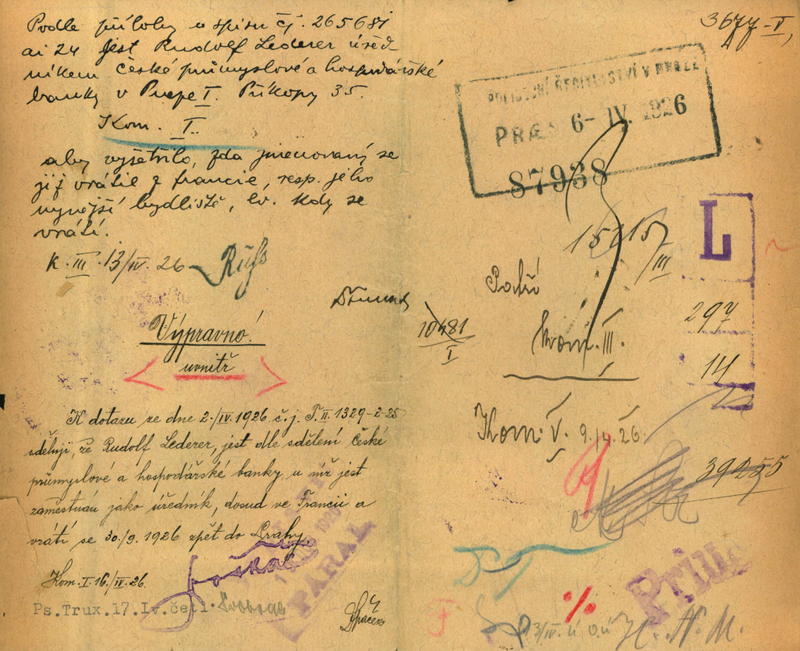 Podle přílohy u spisu čj. 265681
ai 24 jest Rudolf Lederer úřed-
níkem České průmyslové a hospodářské
banky v Praze I. Příkopy 35.
Kom. I.
aby vyšetřilo, zda jmenovaný se
již vrátil z Francie, resp. jeho
nynější bydliště, ev. kdy se
vrátí.
K. III. 13/IV. 26
Výpravno!
uvnitř
K dotazu ze dne 2./IV. 1926 č.j. P.II. 1329-2-25
sděluji, že Rudolf Lederer, jest dle sdělení České
průmyslové a hospodářské banky u níž jest
zaměstnán jako úředník, dosud ve Francii a
vrátí se 30./9. 1926 zpět do Prahy.
Kom. I. 16./IV. 26.
Ps.Trux.17.Iv.četl.
PARAL
3677-V,
POLICEJNÍ ŘEDITELSTVÍ V PRAZE
PRAES 6- IV. 1926
87938
L
15615/III
297
14
10481
I
Kom. III.
Kom. V. 9./4. 26.
39255
%
H. N. M.